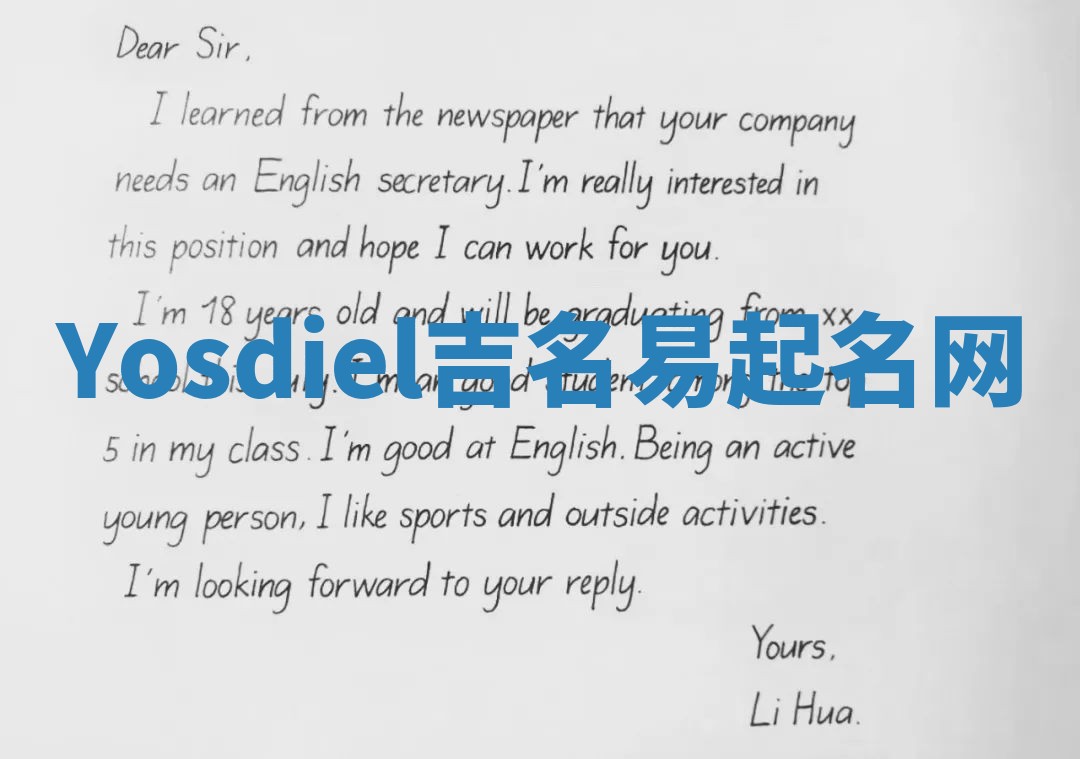 Dear Sir,
I learned from the newspaper that your company
needs an English secretary. I'm really interested in
this position and hope I can work for you.
I'm 18 years old and will be graduating from xx
Yosdiel吉名易起名网
school this July. I'm a good student among the top
5 in my class. I'm good at English. Being an active
young person, I like sports and outside activities.
I'm looking forward to your reply.
Yours,
Li Hua.